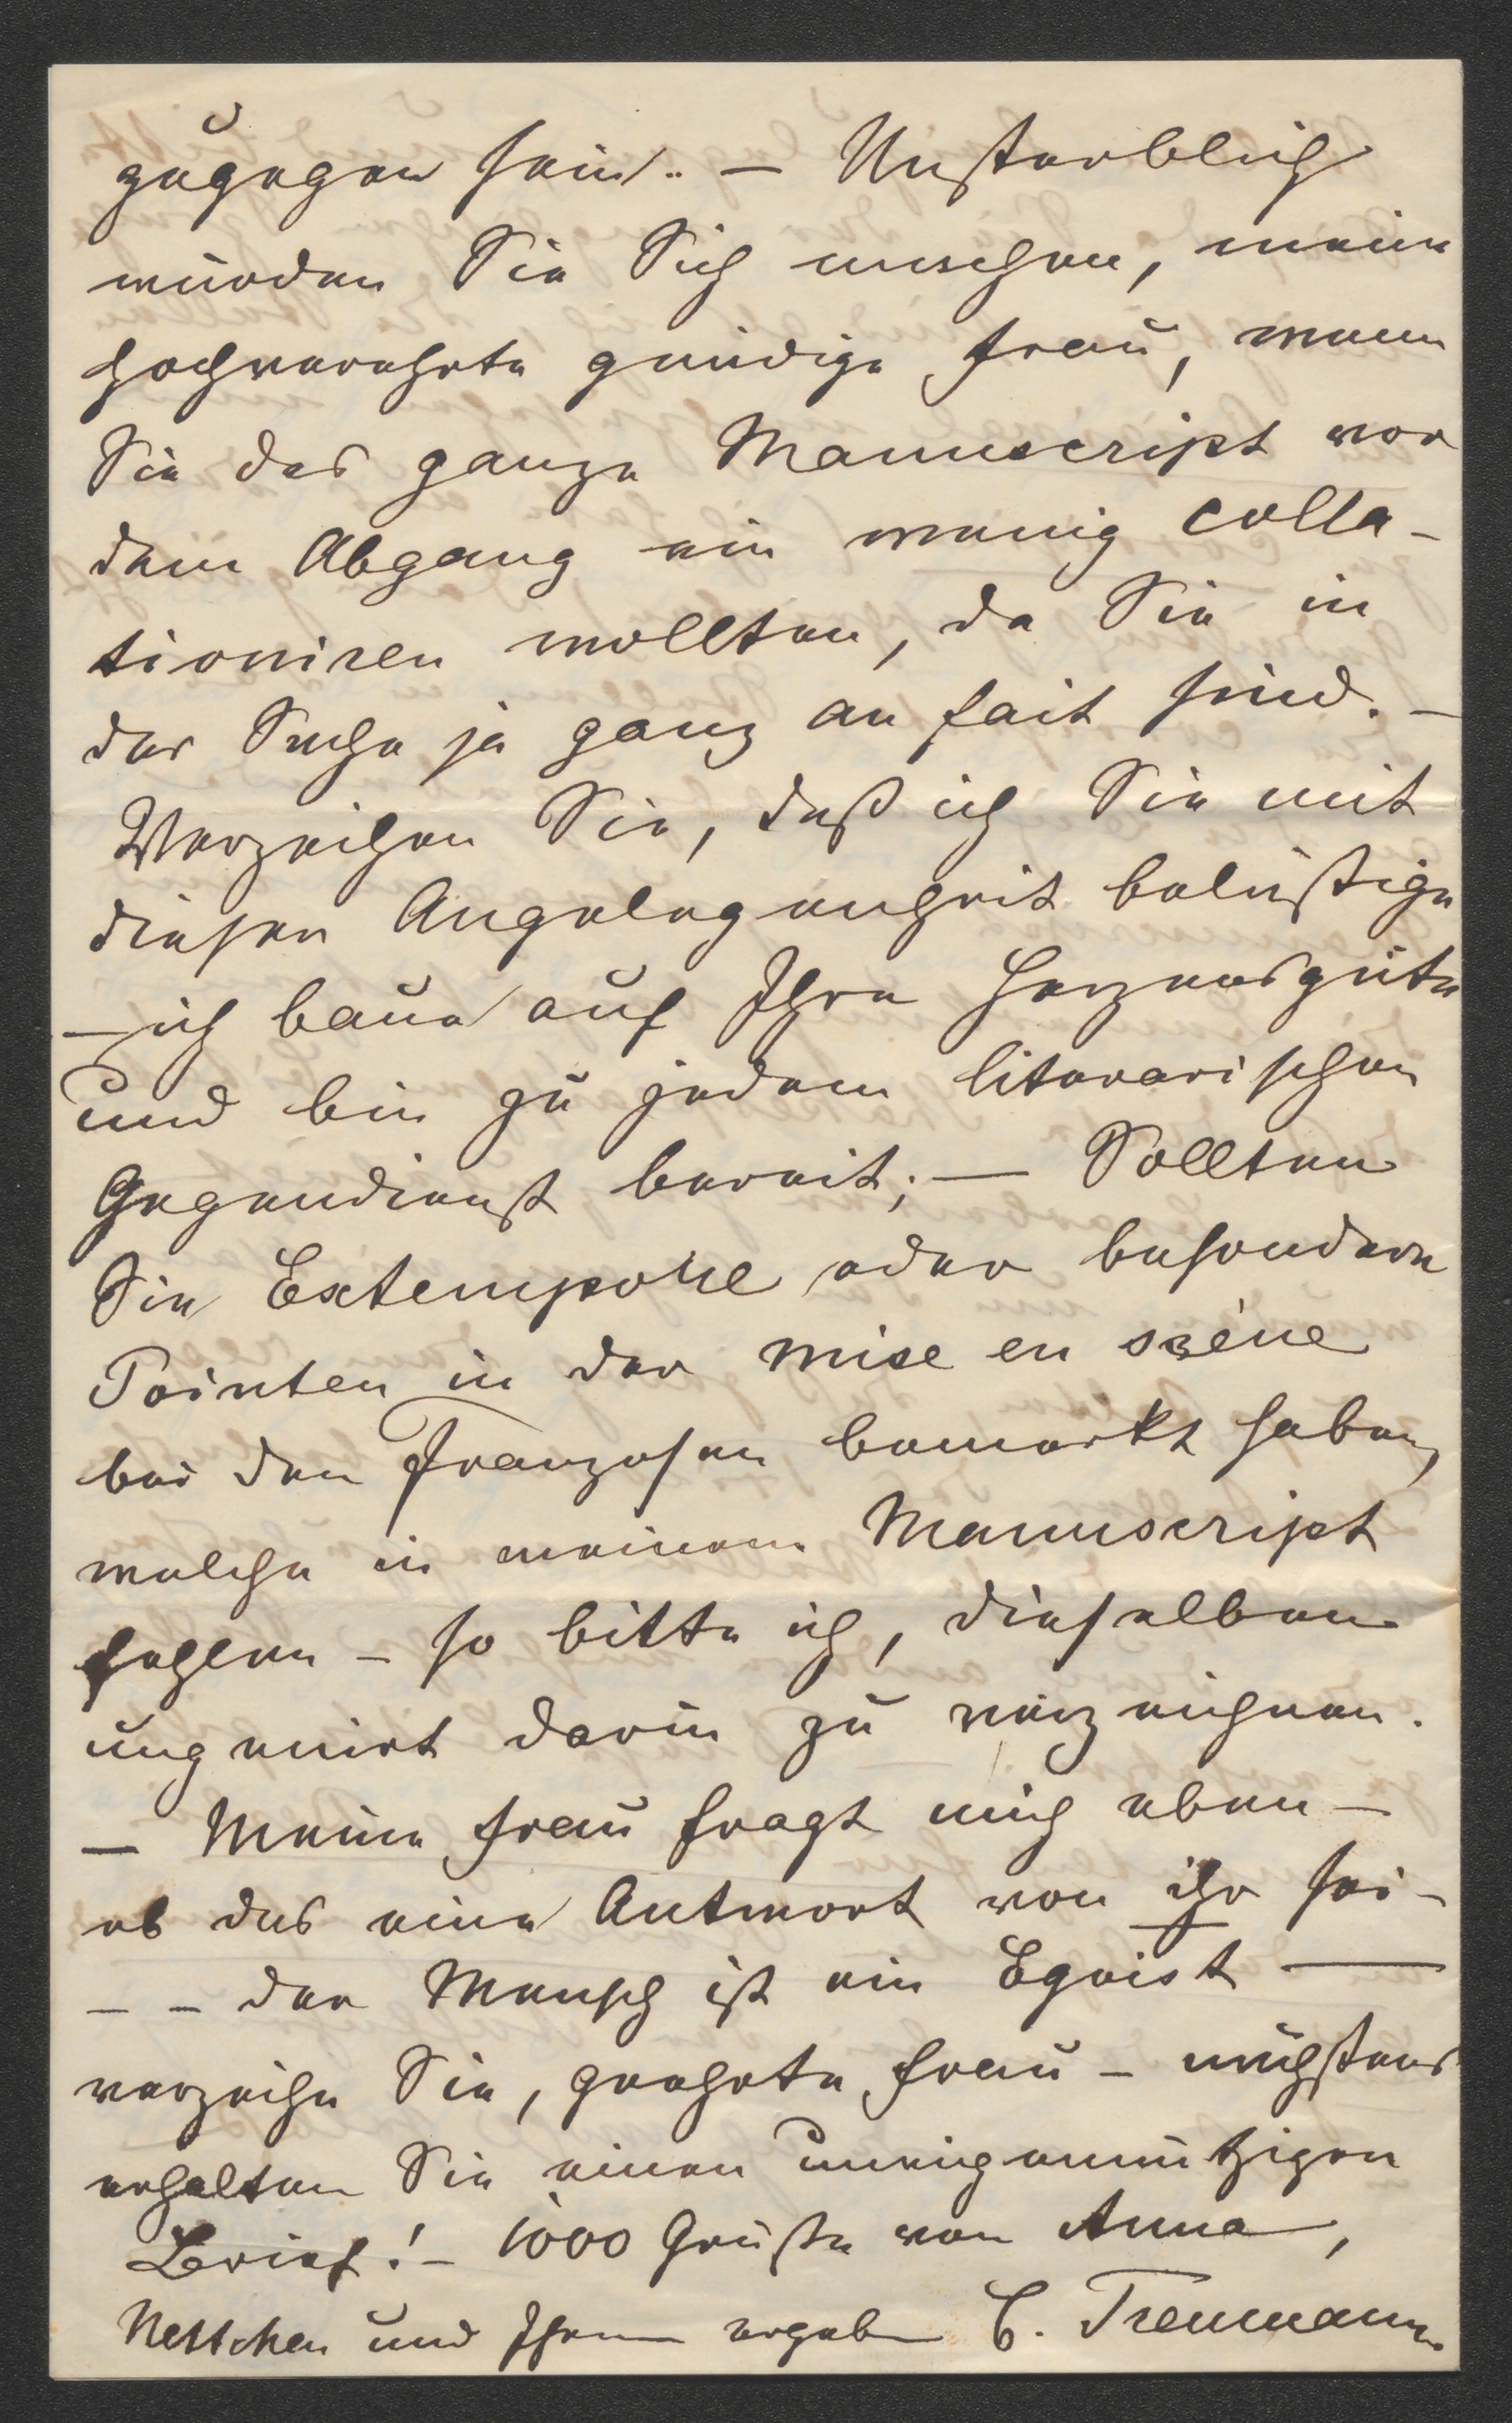 zugegen sein. — Unsterblich
würden Sie Sich machen, meine
hochverehrte gnädige Frau, wenn
Sie das ganze Manuscript vor
dem Abgang ein wenig colla-
tioniren wollten, da Sie in
der Sache ja ganz au fait sind. —
Verzeihen Sie, daß ich Sie mit
dieser Angelegenheit belästige
— ich baue auf Ihre Herzensgüte
und bin zu jedem literarischen
Gegendienst bereit; — Sollten
Sie Extempore oder besondere
Pointen in der mise en scène
bei den Franzosen bemerkt haben,
welche in meinem Manuscript
fehlen – so bitte ich, dieselben
ungenirt darin zu verzeichnen.
— Meine Frau fragt mich eben —
ob das eine Antwort von ihr sei –
– – der Mensch ist ein Egoist —
verzeihe Sie, geehrte Frau – nächstens
erhalten Sie einen uneigennützigen
Brief! – 1000 Grüße von Anna,
Nettchen und Ihrem ergeben C. Treumann